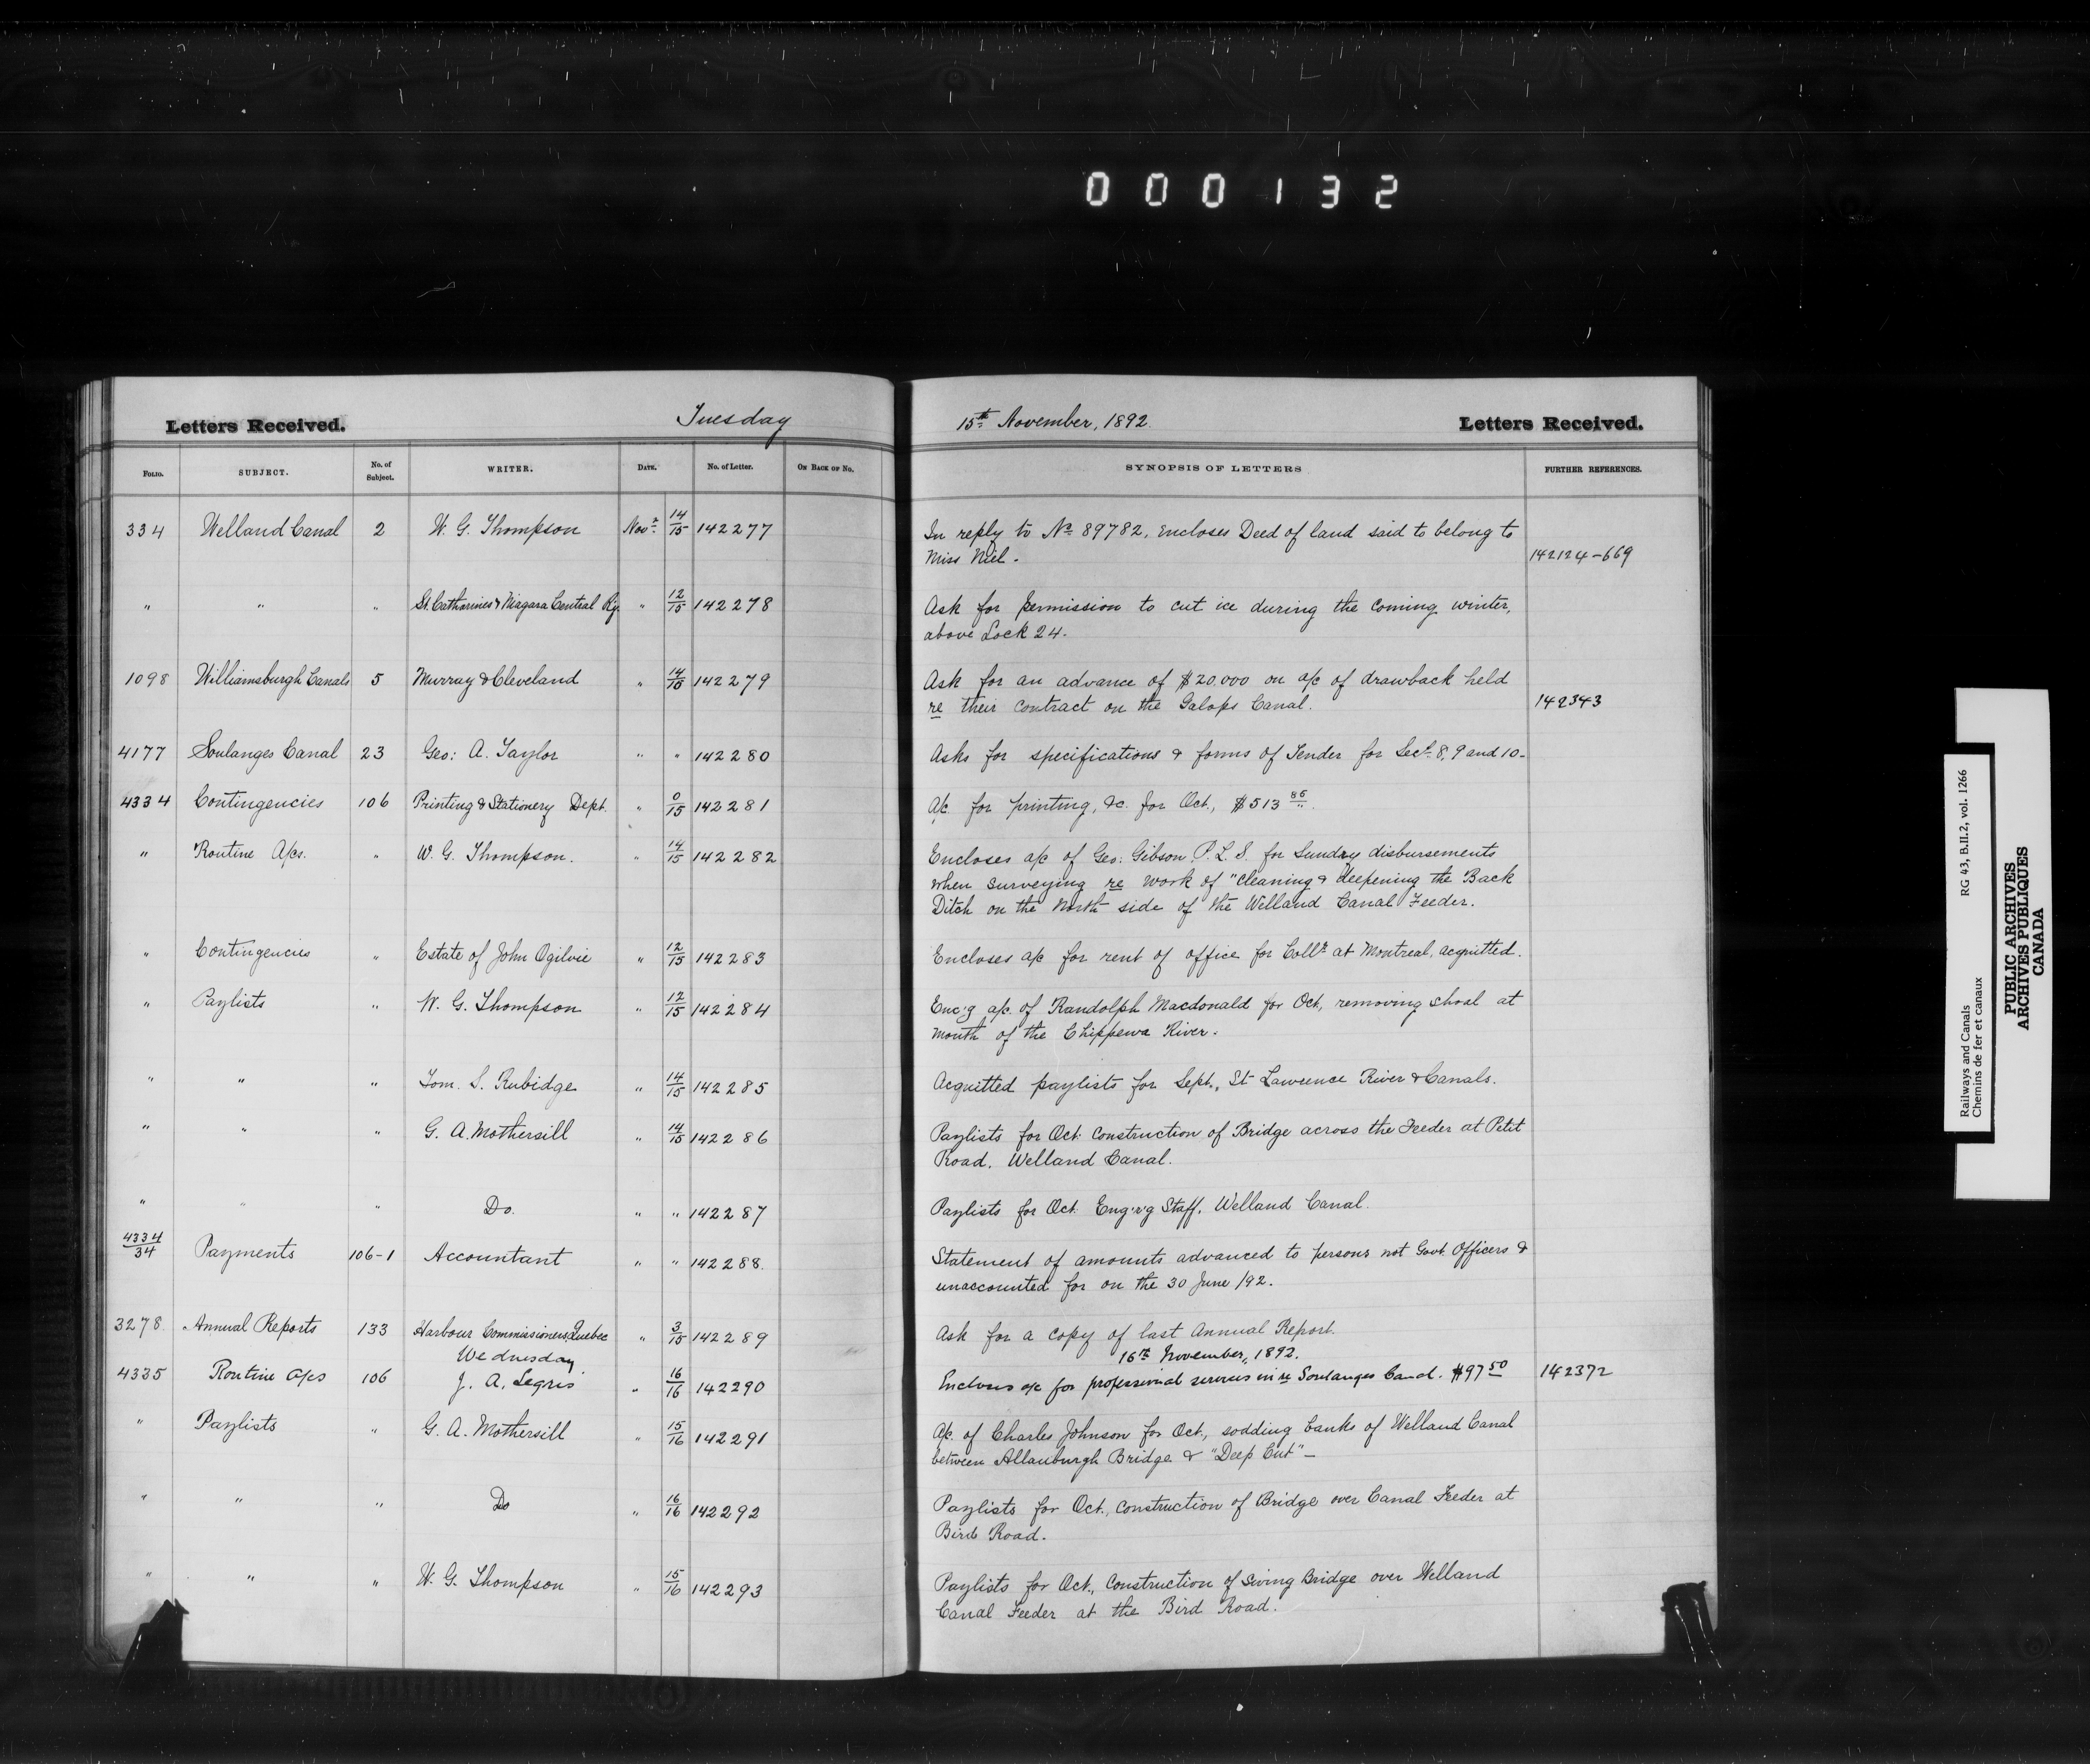 000132
Letters Received. Tuesday 15th November, 1892. Letters Received.
FOLIO. SUBJECT. No. of Subject. WRITER. DATE. No. of Letter. ON BACK OF No. SYNOPSIS OF LETTERS FURTHER REFERENCES.
334 Welland Canal 2 W. G. Thompson Novr 14/15 142277 In reply to No 89782, encloses Deed of land said to belong to
Miss Niel. 142124-669
" " " St. Catharines & Niagara Central Ry. " 12/15 142278 Ask for permission to cut ice during the coming winter,
above Lock 24.
1098 Williamsburgh Canals 5 Murray & Cleveland " 14/15 142279 Ask for an advance of $20,000 on a/c of drawback held
re their contract on the Galops Canal. 142343
4177 Soulanges Canal 23 Geo: A. Taylor " " 142280 Asks for specifications & forms of Tender for Sect. 8, 9 and 10-
4334 Contingencies 106 Printing & Stationery Dept. " 0/15 142281 A/c for printing, &c. for Oct., $513 86
" Routine A/cs. " W. G. Thompson. " 14/15 142282 Encloses a/c of Geo: Gibson, P.L.S. for sundry disbursements
when surveying re work of "cleaning & deepening the Back
Ditch on the North side of the Welland Canal Feeder.
" Contingencies " Estate of John Ogilvie " 12/15 142283 Encloses a/c for rent of office for Collr at Montreal, acquitted.
" Paylists " W. G. Thompson " 12/15 142284 Enc'g a/c. of Randolph Macdonald for Oct, removing shoal at
mouth of the Chippewa River.
" " " Tom. S. Rubidge " 14/15 142285 Acquitted paylists for Sept., St Lawrence River & Canals.
" " " G. A. Mothersill " 14/15 142286 Paylists for Oct. construction of Bridge across the Feeder at Petit
Road, Welland Canal.
" " " Do. " " 142287 Paylists for Oct. Eng'r'g Staff, Welland Canal.
4334/34 Payments 106-1 Accountant " " 142288. Statement of amounts advanced to persons not Govt. Officers &
unaccounted for on the 30 June /92.
3278 Annual Reports 133 Harbour Commissioners Quebec " 3/15 142289 Ask for a copy of last Annual Report.
Wednesday 16th November, 1892.
4335 Routine A/cs 106 J. A. Legris " 16/16 142290 Encloses a/c for professional services in re Soulanges Canal. $97 50 142372
" Paylists " G. A. Mothersill " 15/16 142291 A/c. of Charles Johnson for Oct., sodding banks of Welland Canal
between Allanburgh Bridge & "Deep Cut" -
" " " Do " 16/16 142292 Paylists for Oct., construction of Bridge over Canal Feeder at
Bird Road.
" " " W. G. Thompson " 15/16 142293 Paylists for Oct., construction of Swing Bridge over Welland
Canal Feeder at the Bird Road.
Railways and Canals RG 43, B.II.2, vol. 1266
Chemins de fer et canaux
PUBLIC ARCHIVES
ARCHIVES PUBLIQUES
CANADA